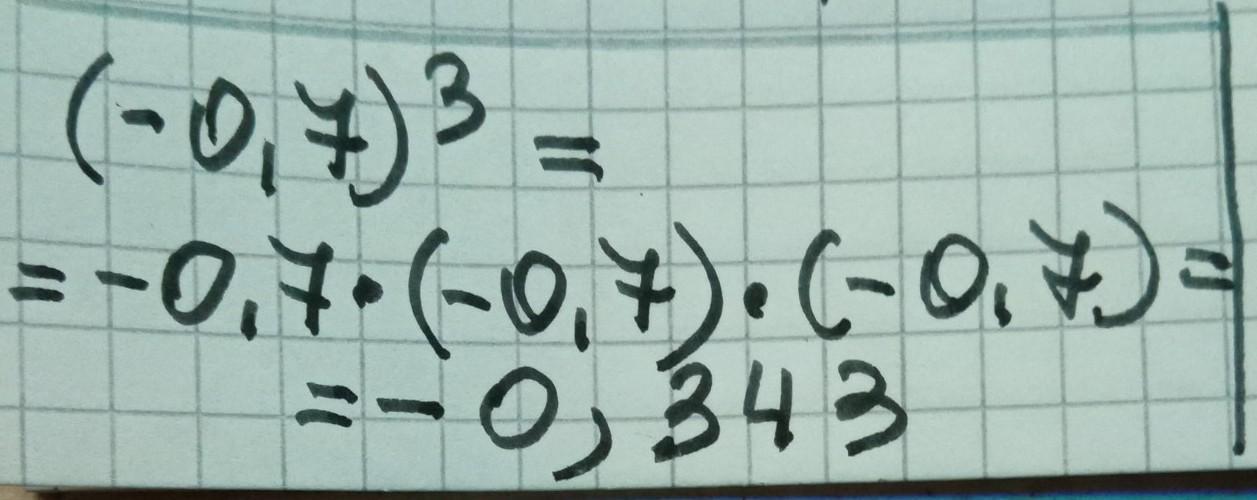 (-0,7)³ =
= -0,7·(-0,7)·(-0,7) =
= - 0,343